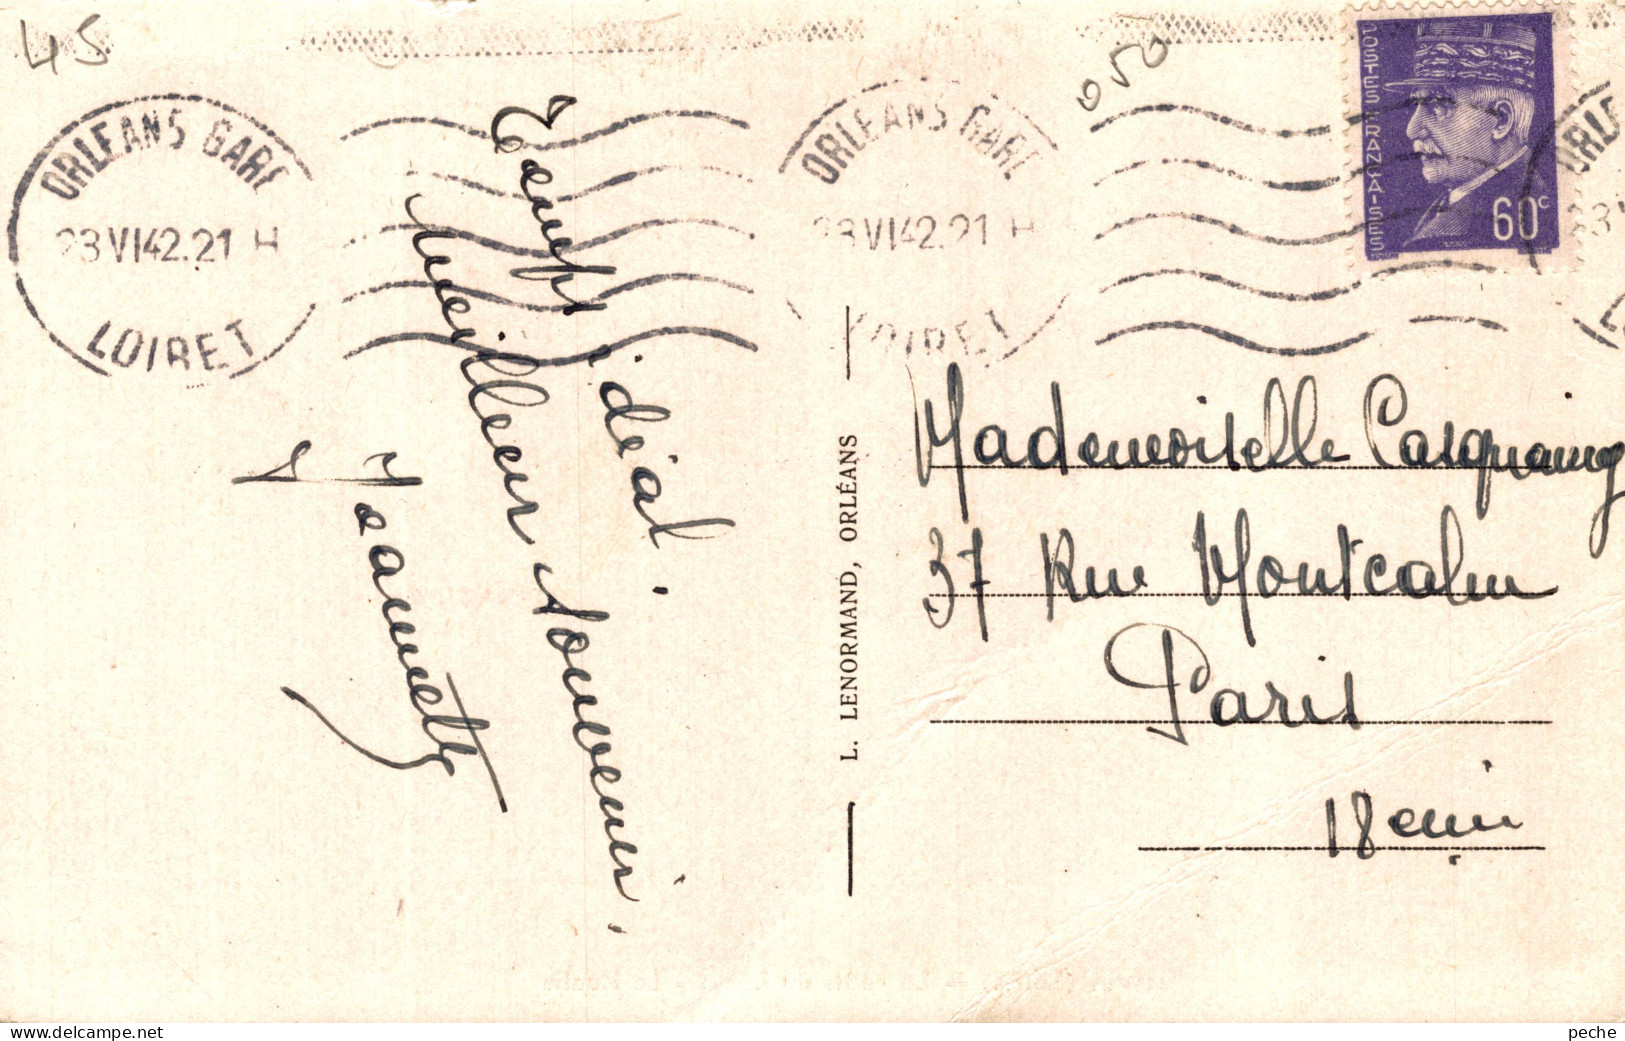 45
050
ORLEANS GARE
23 VI 42.21 H
LOIRET
ORLEANS GARE
23 VI 42.21 H
LOIRET
POSTES FRANÇAISES
60c
Temps idéal.
Meilleur souvenir.
Jeannette
L. LENORMAND, ORLÉANS
Mademoiselle
37 Rue Montcalm
Paris
18 eme
peche